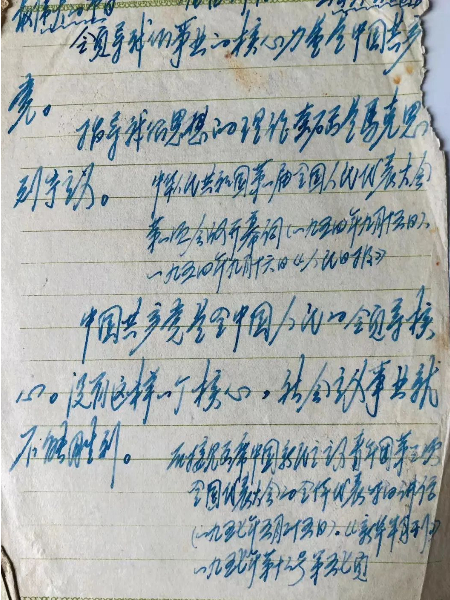 领导我们事业的核心力量是中国共产
党。
指导我们思想的理论基础是马克思
列宁主义。
中华人民共和国第一届全国人民代表大会
第一次会议开幕词(一九五四年九月十五日),
一九五四年九月十六日《人民日报》
中国共产党是全中国人民的领导核
心。没有这样一个核心,社会主义事业就
不能胜利。
在接见出席中国新民主主义青年团第三次
全国代表大会的全体代表时的讲话
(一九五七年五月二十五日),《新华半月刊》
一九五七年第十二号第五七页